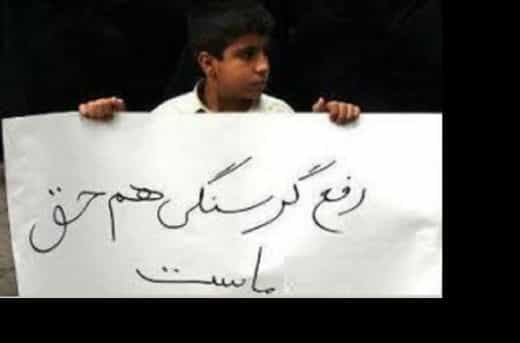 رفع گرسنگی هم حق
ماست